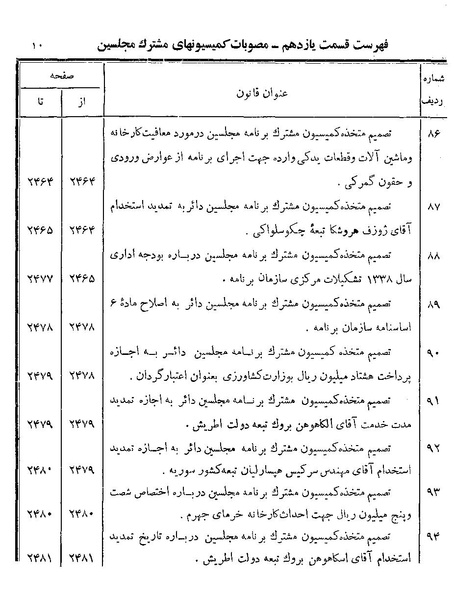 فهرست قسمت یازدهم ــ مصوبات کمیسیونهای مشترك مجلسین ۱۰
شماره ردیف عنوان قانون صفحه
از تا
۸۶ تصمیم متخذه کمیسیون مشترك برنامه مجلسین درمورد معافیت کارخانه
وماشین آلات وقطعات یدکی وارده جهت اجرای برنامه از عوارض ورودی
و حقون گمرکی . ۲۴۶۴ ۲۴۶۴
۸۷ تصمیم متخذه کمیسیون مشترك برنامه مجلسین دائر به تمدید استخدام
آقای ژوزف هروشکا تبعهٔ چکوسلواکی . ۲۴۶۴ ۲۴۶۵
۸۸ تصمیم متخذه کمیسیون مشترك برنامه مجلسین درباره بودجه اداری
سال ۱۳۳۸ تشکیلات مرکزی سازمان برنامه . ۲۴۶۵ ۲۴۷۷
۸۹ تصمیم متخذه کمیسیون مشترك برنامه مجلسین دائر به اصلاح مادهٔ ۶
اساسنامه سازمان برنامه . ۲۴۷۸ ۲۴۷۸
۹۰ تصمیم متخذه کمیسیون مشترك برنامه مجلسین دائر به اجازه
پرداخت هشتاد میلیون ریال بوزارت کشاورزی بعنوان اعتبار گردان . ۲۴۷۸ ۲۴۷۹
۹۱ تصمیم متخذه کمیسیون مشترك برنامه مجلسین دائر به اجازه تمدید
مدت خدمت آقای الکاهوهن بروك تبعه دولت اطریش . ۲۴۷۹ ۲۴۷۹
۹۲ تصمیم متخذه کمیسیون مشترك برنامه مجلسین دائر به اجازه تمدید
استخدام آقای مهندس سرکیس هپسارلیان تبعه کشور سوریه . ۲۴۷۹ ۲۴۸۰
۹۳ تصمیم متخذه کمیسیون مشترك برنامه مجلسین درباره اختصاص شصت
وپنج میلیون ریال جهت احداث کارخانه خرمای جهرم . ۲۴۸۰ ۲۴۸۰
۹۴ تصمیم متخذه کمیسیون مشترك برنامه مجلسین درباره تاریخ تمدید
استخدام آقای اسکاهوهن بروك تبعه دولت اطریش . ۲۴۸۱ ۲۴۸۱